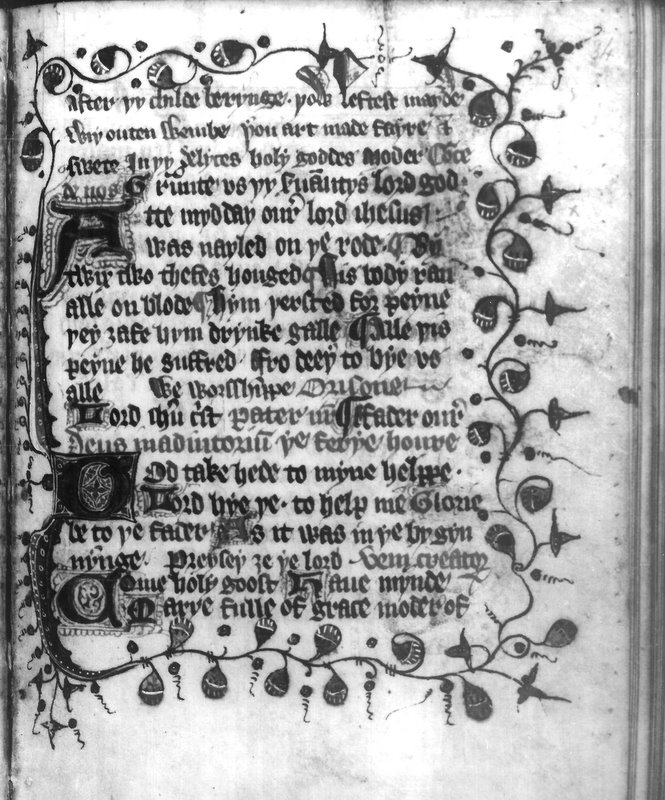 After yy childe berynge · you leftest mayde
Wiy outen wembe you art made fayre &
swete In yy delytes holy goddes moder
A nos Grunte us yy seruauntys lord god ·
Atte mydday our lord ihesus
was nayled on ye rode · By
twix two thefes honged His body ran
alle on blode Hym yersted for peyne
yey zafe hym drynke galle Alle yis
peyne he suffred · ffro deey to bye us
alle We worsshippe Orisone
Lord ihu cst pater nr ffader our
Deus in adiutoriu ye ferye houre
God take hede to myne helppe ·
Lord hye ye · to help me Glorie
be to ye fader As it was in ye bygyn
nynge · Preysey ze ye lord · veni creator
Come holy goost Haue mynde
Marye fulle of grace moder of